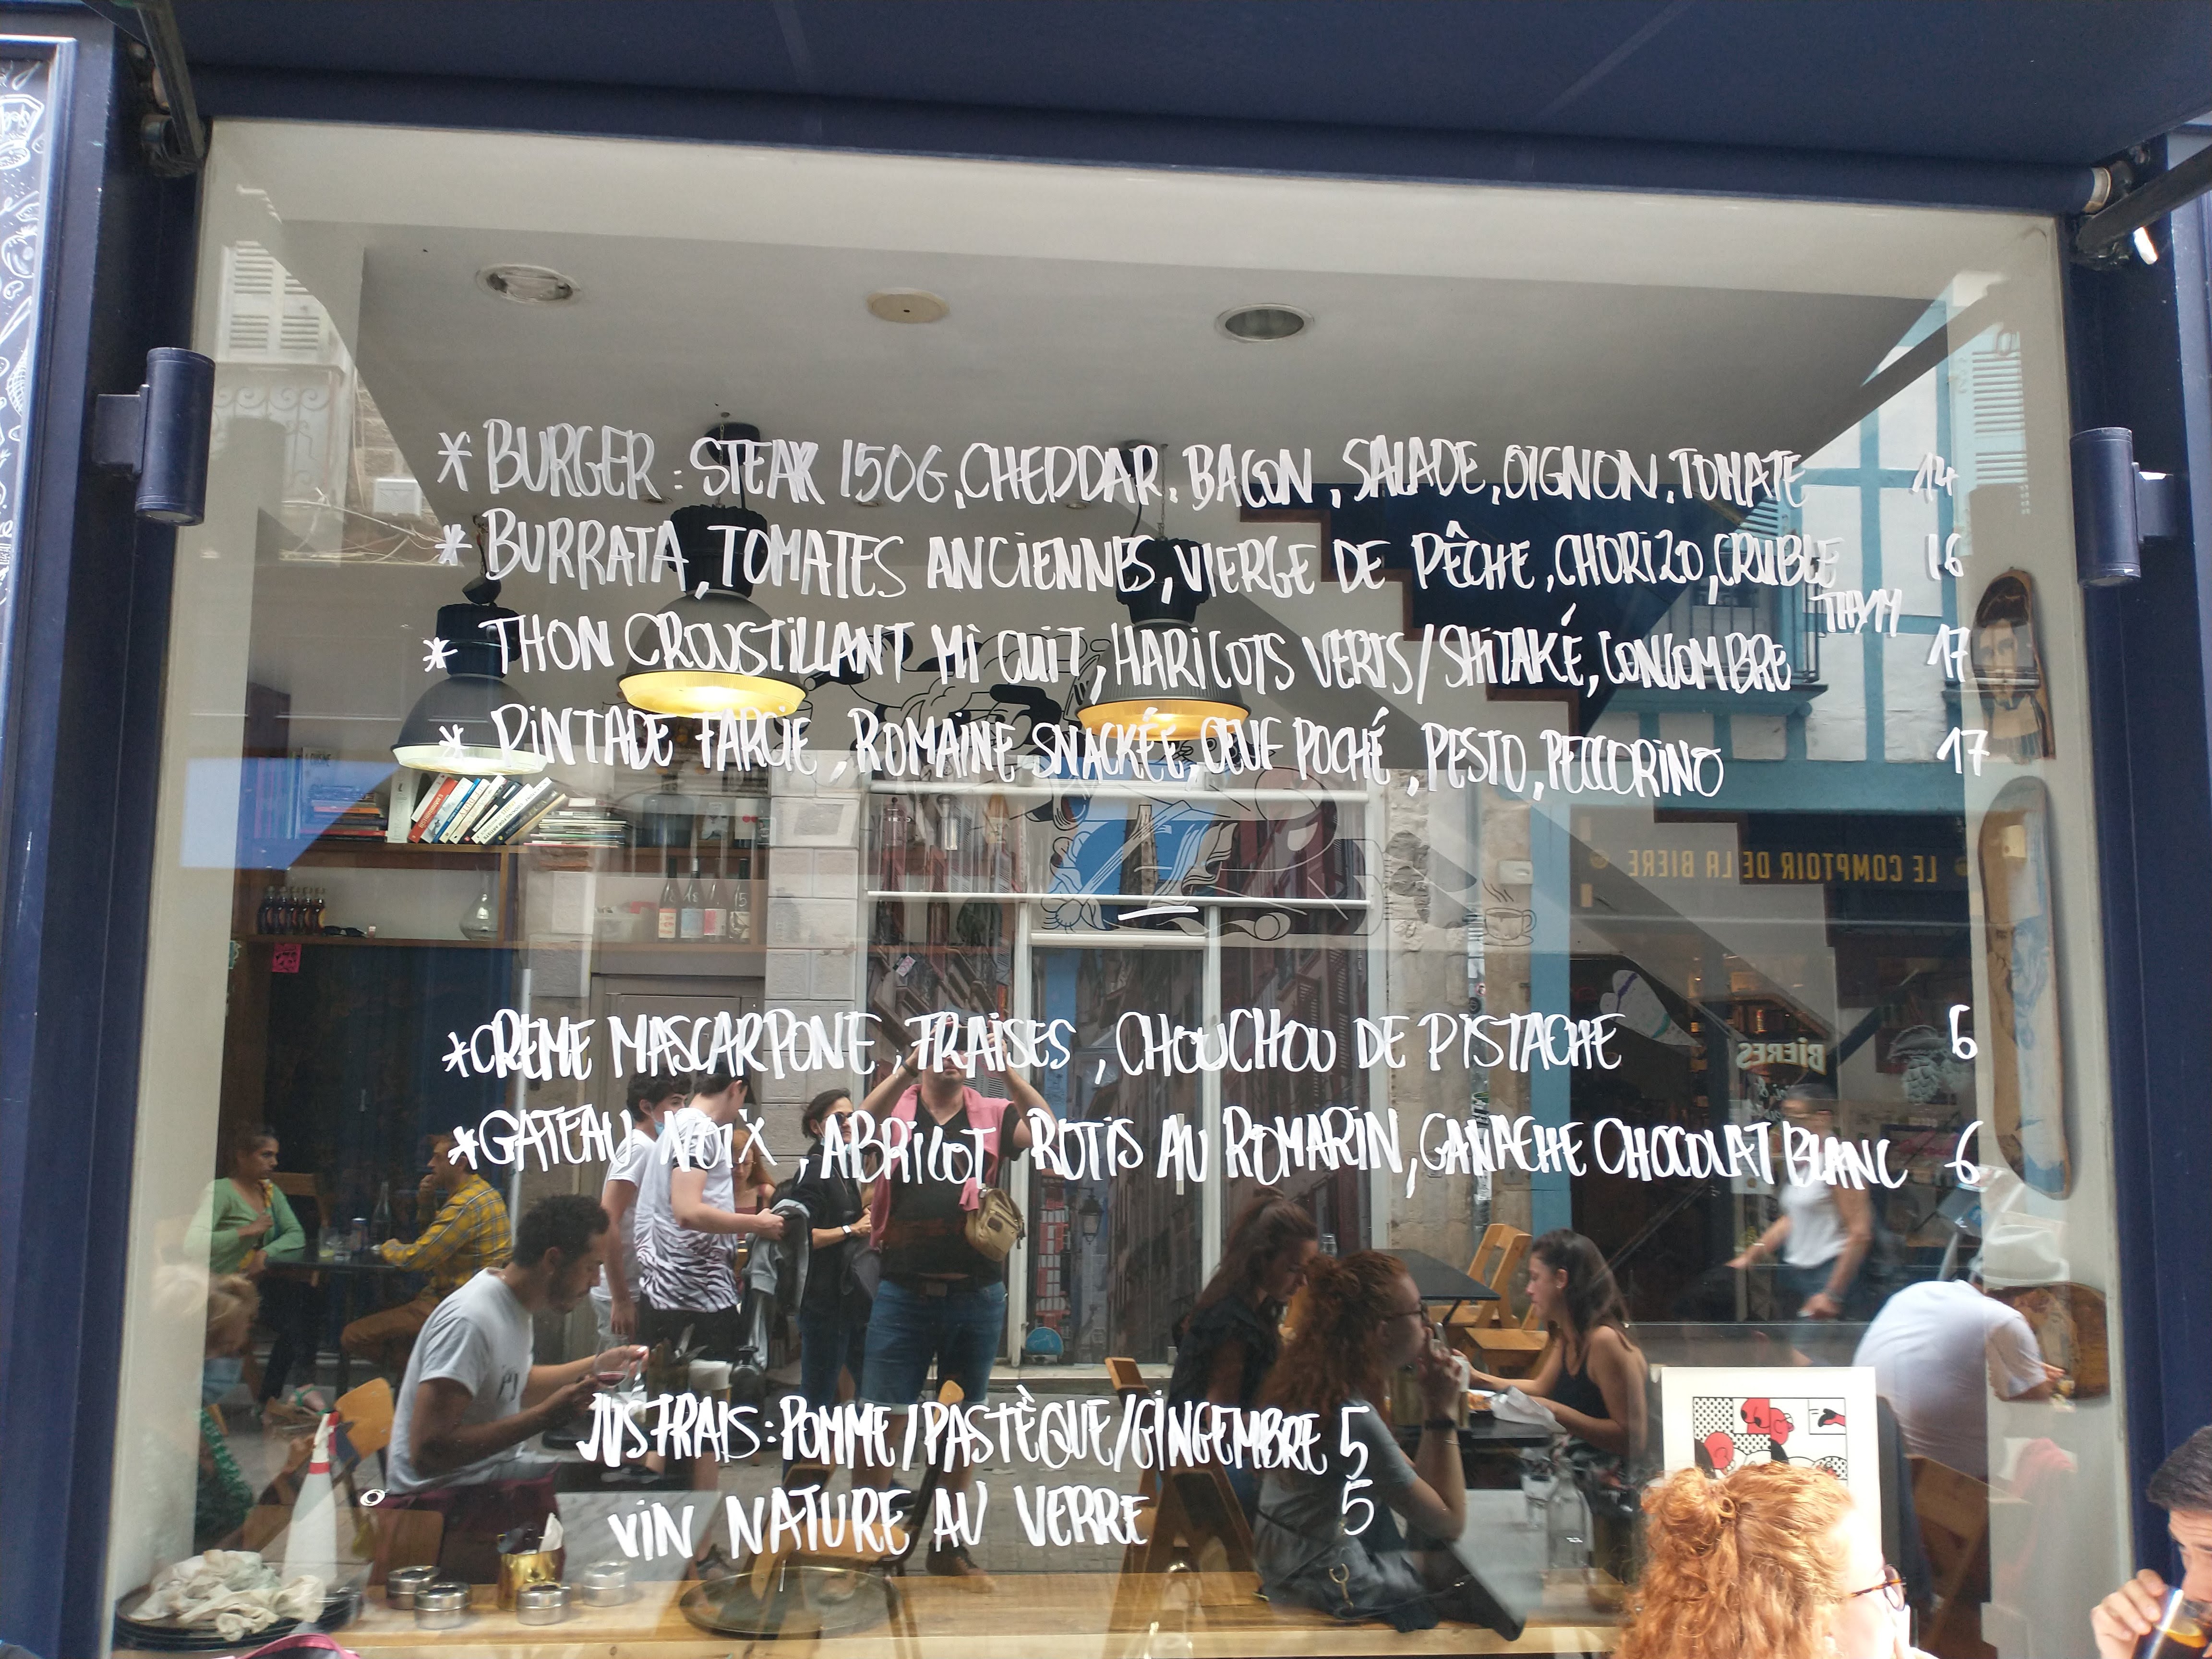 * BURGER : STEAK 150G, CHEDDAR, BACON, SALADE, OIGNON, TOMATE 14
* BURRATA, TOMATES ANCIENNES, VIERGE DE PÊCHE, CHORIZO, CRUBLE THYM 16
* THON CROUSTILLANT MI CUIT, HARICOTS VERTS/SHITAKÉ, CONCOMBRE 17
* PINTADE FARCIE, ROMAINE SNACKÉE, OEUF POCHÉ, PESTO, PECCORINO 17
LE COMPTOIR DE LA BIERE
BIERES
*CREME MASCARPONE, FRAISES, CHOUCHOU DE PISTACHE 6
*GATEAU NOIX, ABRICOT ROTIS AU ROMARIN, GANACHE CHOCOLAT BLANC 6
JUS FRAIS : POMME/PASTÈQUE/GINGEMBRE 5
VIN NATURE AU VERRE 5